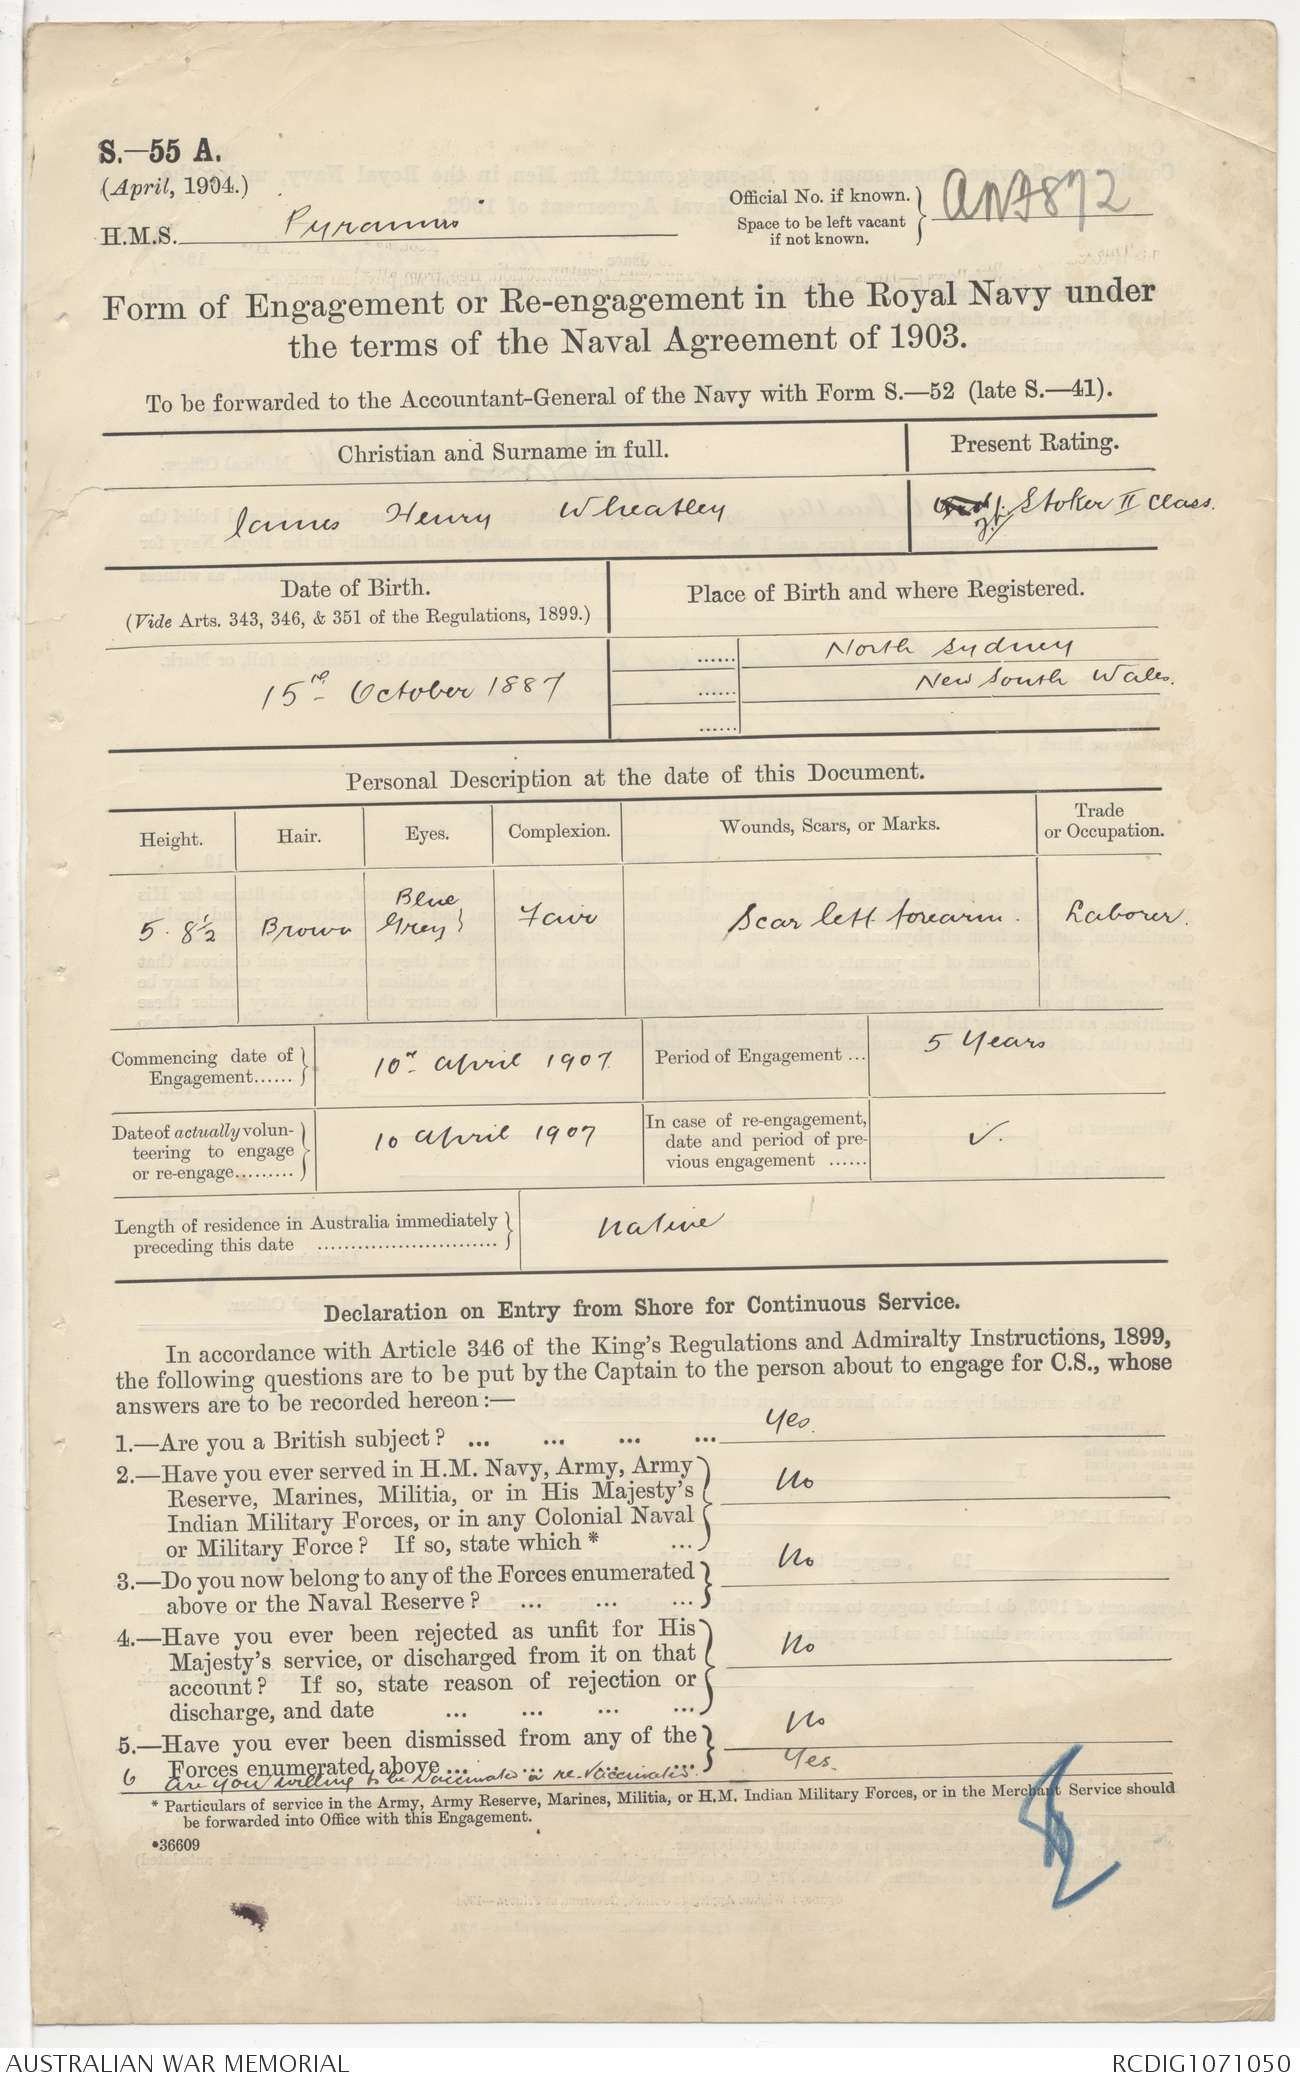 S.—55 A.
(April, 1904.)
H.M.S. Pyramus
Official No. if known.
Space to be left vacant
if not known.
ANF872
Form of Engagement or Re-engagement in the Royal Navy under
the terms of the Naval Agreement of 1903.
To be forwarded to the Accountant-General of the Navy with Form S.—52 (late S.—41).
Christian and Surname in full.
Present Rating.
James Henry Wheatley
Stoker II Class.
Date of Birth.
(Vide Arts. 343, 346, & 351 of the Regulations, 1899.)
Place of Birth and where Registered.
15 October 1887
...... North Sydney
...... New South Wales.
......
Personal Description at the date of this Document.
Height.
Hair.
Eyes.
Complexion.
Wounds, Scars, or Marks.
Trade
or Occupation.
5. 8½
Brown
Blue
Grey}
Fair
Scar left forearm.
Laborer.
Commencing date of
Engagement......
10 April 1907
Period of Engagement ...
5 Years
Date of actually volun-
teering to engage
or re-engage.........
10 April 1907
In case of re-engagement,
date and period of pre-
vious engagement ......
✓.
Length of residence in Australia immediately
preceding this date ...........................
Native
Declaration on Entry from Shore for Continuous Service.
In accordance with Article 346 of the King's Regulations and Admiralty Instructions, 1899,
the following questions are to be put by the Captain to the person about to engage for C.S., whose
answers are to be recorded hereon :—
1.—Are you a British subject? ... ... ... ... Yes.
2.—Have you ever served in H.M. Navy, Army, Army
Reserve, Marines, Militia, or in His Majesty's
Indian Military Forces, or in any Colonial Naval
or Military Force? If so, state which * ...
No
3.—Do you now belong to any of the Forces enumerated
above or the Naval Reserve? ... ... ...
No
4.—Have you ever been rejected as unfit for His
Majesty's service, or discharged from it on that
account? If so, state reason of rejection or
discharge, and date ... ... ... ...
No
5.—Have you ever been dismissed from any of the
Forces enumerated above ... ... ... ...
No
6 Are you willing to be Vaccinated or re-Vaccinated. Yes.
* Particulars of service in the Army, Army Reserve, Marines, Militia, or H.M. Indian Military Forces, or in the Merchant Service should
be forwarded into Office with this Engagement.
*36609
AUSTRALIAN WAR MEMORIAL
RCDIG1071050